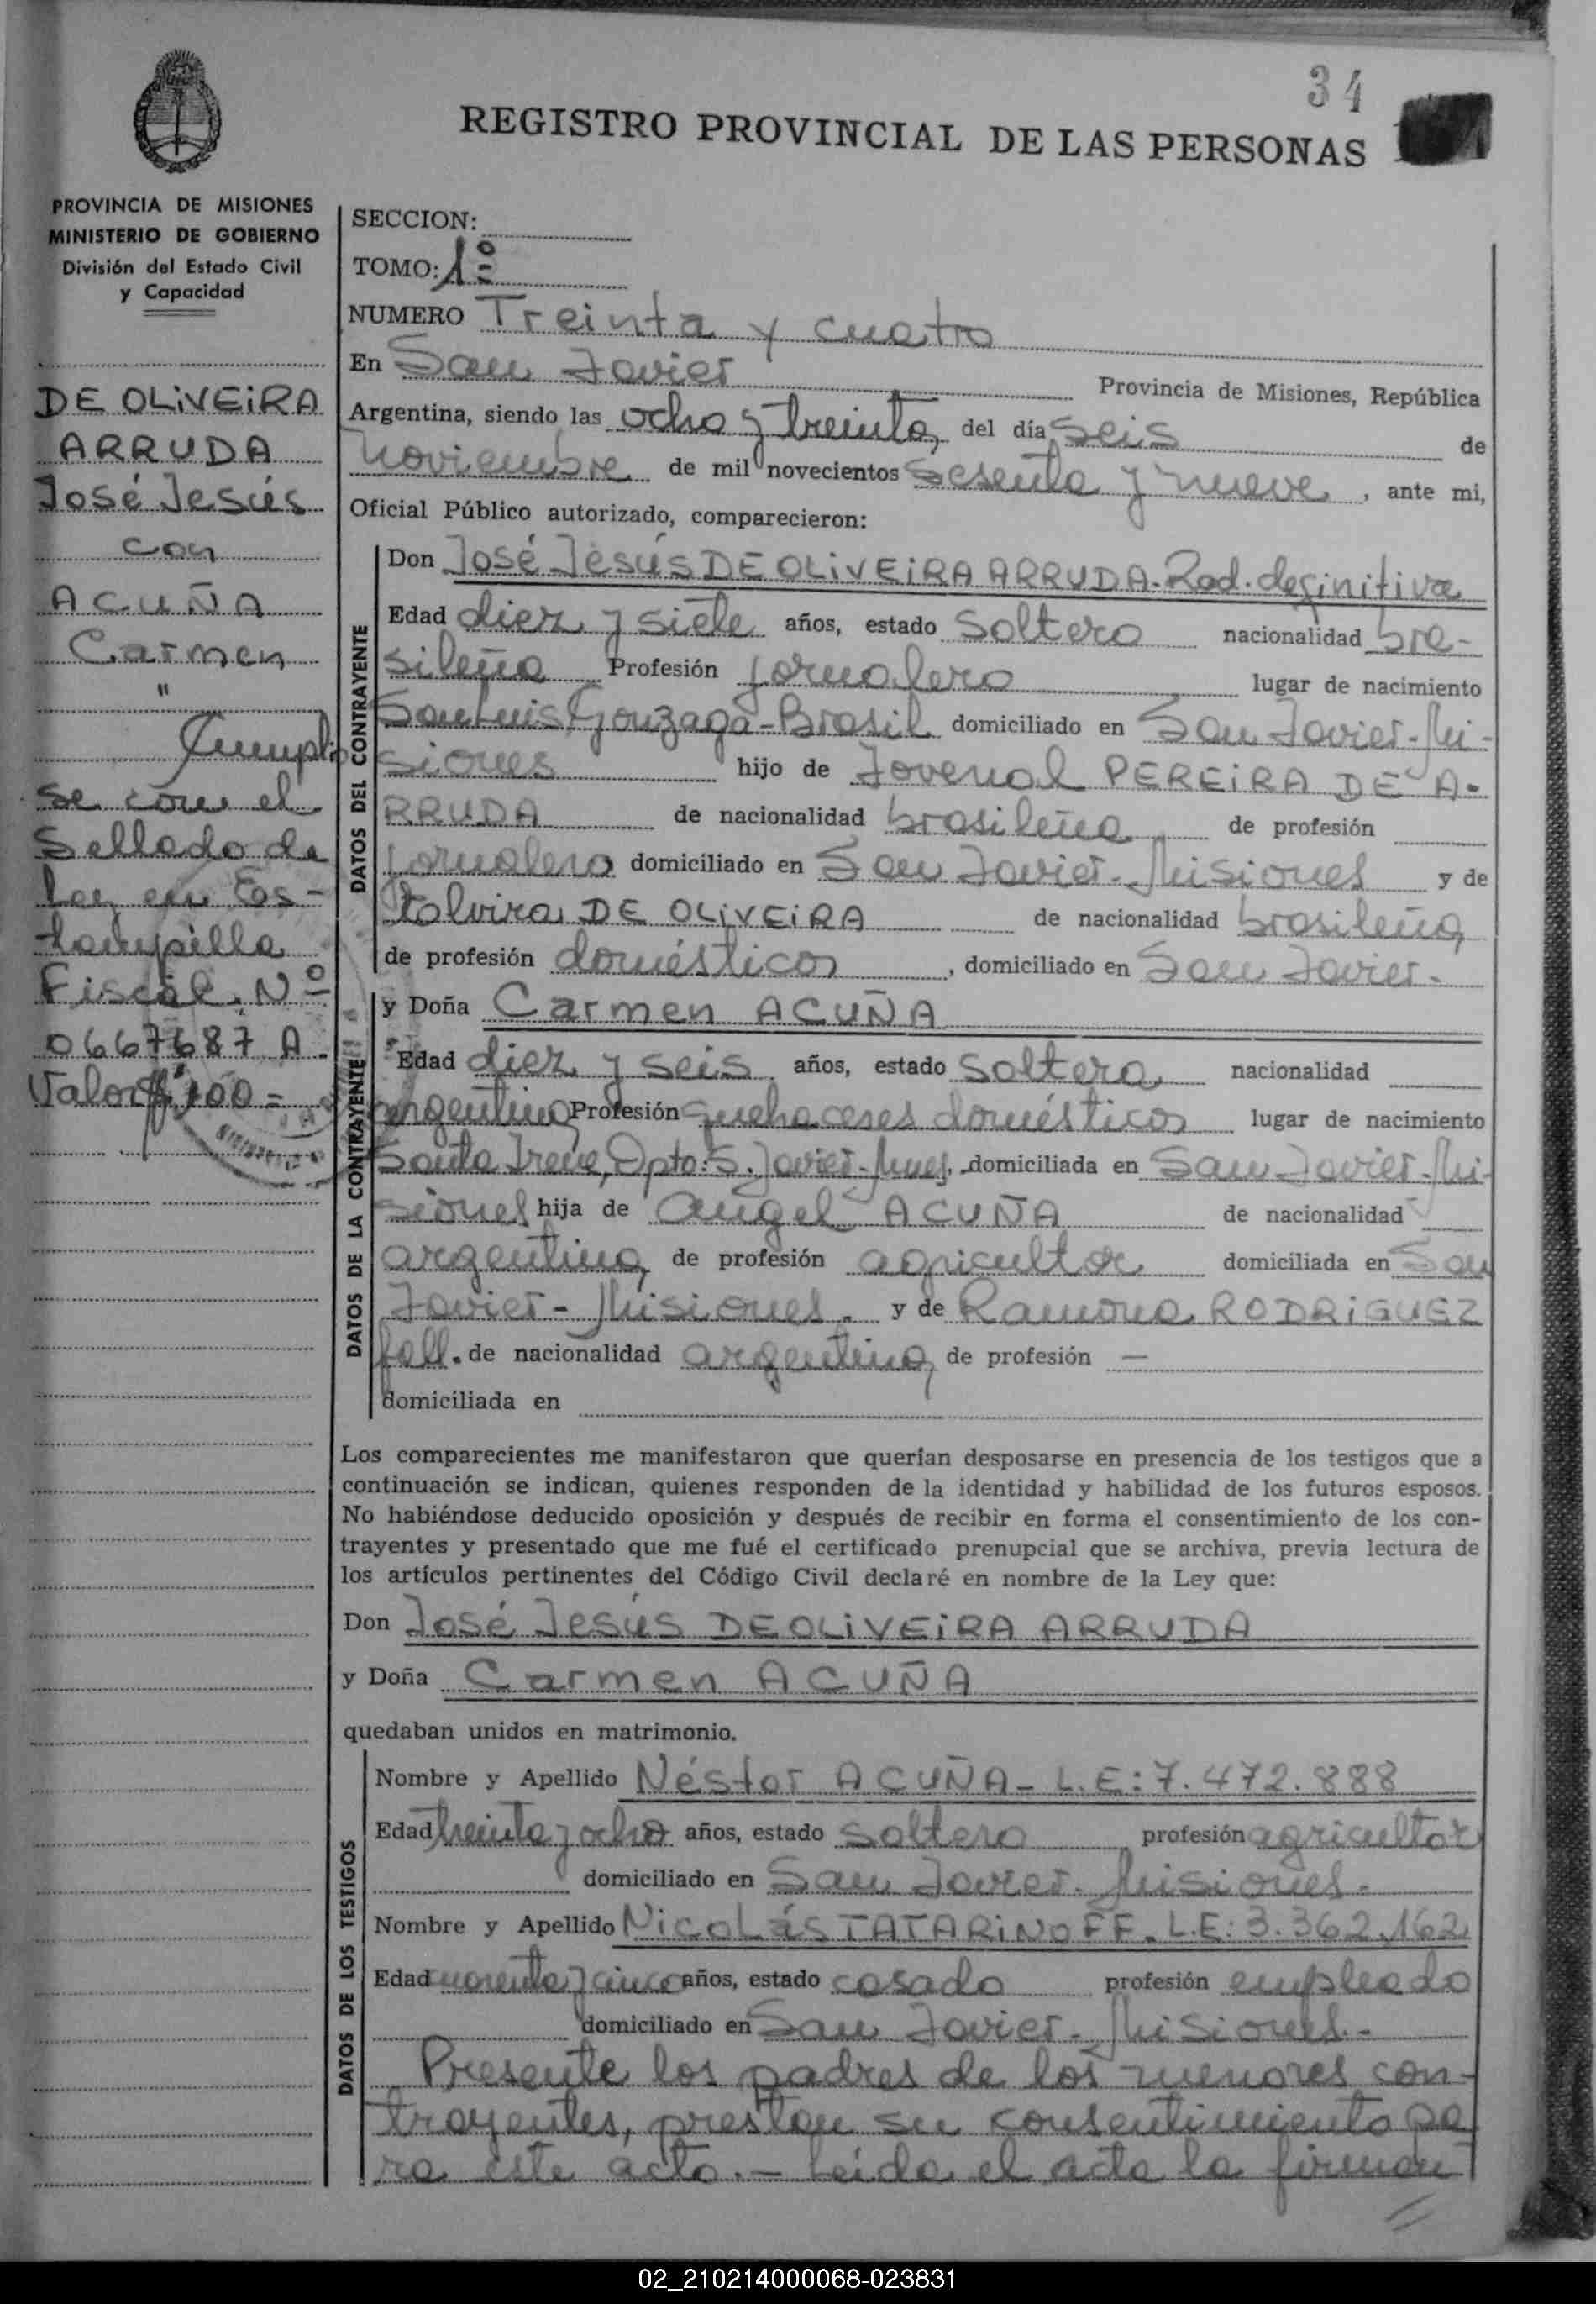 34
REGISTRO PROVINCIAL DE LAS PERSONAS
PROVINCIA DE MISIONES
MINISTERIO DE GOBIERNO
División del Estado Civil
y Capacidad
DE OLIVEIRA
ARRUDA
José Jesús
con
ACUÑA
Carmen
"
Cumpli
se con el
Sellado de
Ley en Es-
tampilla
Fiscal. Nº
0667687 A.
Valor $ 100=
SECCION:
TOMO: 1º
NUMERO Treinta y cuatro
En San Javier Provincia de Misiones, República
Argentina, siendo las ocho y treinta, del día seis de
noviembre de mil novecientos sesenta y nueve, ante mi,
Oficial Público autorizado, comparecieron:
DATOS DEL CONTRAYENTE
Don José Jesús DE OLIVEIRA ARRUDA. Rad. definitiva
Edad diez y siete años, estado soltero nacionalidad bra-
sileña Profesión jornalero lugar de nacimiento
San Luis Gonzaga-Brasil domiciliado en San Javier-Mi-
siones hijo de Jovenal PEREIRA DE A-
RRUDA de nacionalidad brasileña de profesión
jornalero domiciliado en San Javier-Misiones y de
DE OLIVEIRA de nacionalidad brasileña,
de profesión domésticos, domiciliado en San Javier.
DATOS DE LA CONTRAYENTE
y Doña Carmen ACUÑA
Edad diez y seis años, estado soltera nacionalidad
argentina Profesión quehaceres domésticos lugar de nacimiento
Santa Irene, Dpto. S. Javier-Mnes, domiciliada en San Javier-Mi-
siones hija de Angel ACUÑA de nacionalidad
argentina, de profesión agricultor domiciliada en San
Javier-Misiones. y de Ramona RODRIGUEZ
fall. de nacionalidad argentina, de profesión —
domiciliada en
Los comparecientes me manifestaron que querían desposarse en presencia de los testigos que a
continuación se indican, quienes responden de la identidad y habilidad de los futuros esposos.
No habiéndose deducido oposición y después de recibir en forma el consentimiento de los con-
trayentes y presentado que me fué el certificado prenupcial que se archiva, previa lectura de
los artículos pertinentes del Código Civil declaré en nombre de la Ley que:
Don José Jesús DE OLIVEIRA ARRUDA
y Doña Carmen ACUÑA
quedaban unidos en matrimonio.
DATOS DE LOS TESTIGOS
Nombre y Apellido Néstor ACUÑA- L.E: 7.472.888
Edad treinta y ocho años, estado soltero profesión agricultor
domiciliado en San Javier-Misiones.
Nombre y Apellido Nicolás TATARINOFF. L.E: 3.362.162
Edad cuarenta y cinco años, estado casado profesión empleado
domiciliado en San Javier-Misiones.-
Presente los padres de los menores con-
trayentes, prestan su consentimiento pa
ra este acto.- Leída el acta la firman
02_210214000068-023831